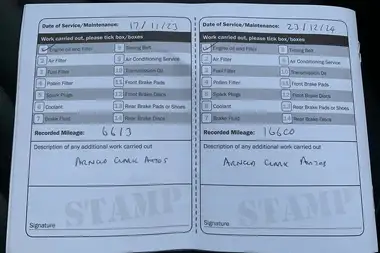 Date of Service/Maintenance: 17/11/23
Work carried out, please tick box/boxes
1 Engine oil and Filter 8 Timing Belt
2 Air Filter 9 Air Conditioning Service
3 Fuel Filter 10 Transmission Oil
4 Pollen Filter 11 Front Brake Pads
5 Spark Plugs 12 Front Brake Discs
6 Coolant 13 Rear Brake Pads or Shoes
7 Brake Fluid 14 Rear Brake Discs
Recorded Mileage: 6613
Description of any additional work carried out
ARNOLD CLARK AUTOS
STAMP
Signature
Date of Service/Maintenance: 23/12/24
Work carried out, please tick box/boxes
1 Engine oil and Filter 8 Timing Belt
2 Air Filter 9 Air Conditioning Service
3 Fuel Filter 10 Transmission Oil
4 Pollen Filter 11 Front Brake Pads
5 Spark Plugs 12 Front Brake Discs
6 Coolant 13 Rear Brake Pads or Shoes
7 Brake Fluid 14 Rear Brake Discs
Recorded Mileage: 16600
Description of any additional work carried out
ARNOLD CLARK AUTOS
STAMP
Signature